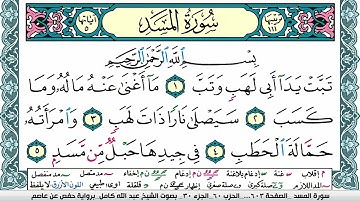 سُورَةُ المَسَدِ
ترتيبها ١١١
آياتها ٥
بِسْمِ ٱللَّهِ ٱلرَّحْمَٰنِ ٱلرَّحِيمِ
تَبَّتْ يَدَآ أَبِى لَهَبٍ وَتَبَّ ١ مَآ أَغْنَىٰ عَنْهُ مَالُهُۥ وَمَا
كَسَبَ ٢ سَيَصْلَىٰ نَارًا ذَاتَ لَهَبٍ ٣ وَٱمْرَأَتُهُۥ
حَمَّالَةَ ٱلْحَطَبِ ٤ فِى جِيدِهَا حَبْلٌ مِّن مَّسَدٍۭ ٥
سورة المسد الصفحة ٦٠٣ الحزب ٦٠ الجزء ٣٠ بصوت الشيخ عبد الله كامل برواية حفص عن عاصم